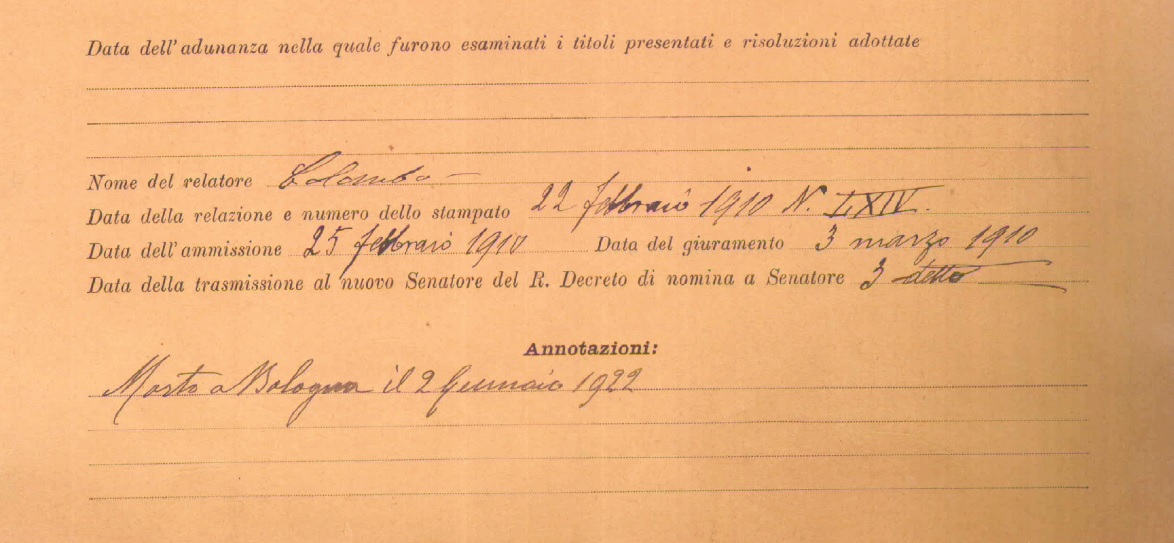 Data dell'adunanza nella quale furono esaminati i titoli presentati e risoluzioni adottate
Nome del relatore Colombo
Data della relazione e numero dello stampato 22 febbraio 1910 N. LXIV.
Data dell'ammissione 25 febbraio 1910 Data del giuramento 3 marzo 1910
Data della trasmissione al nuovo Senatore del R. Decreto di nomina a Senatore 3 detto
Annotazioni:
Morto a Bologna il 2 Gennaio 1922